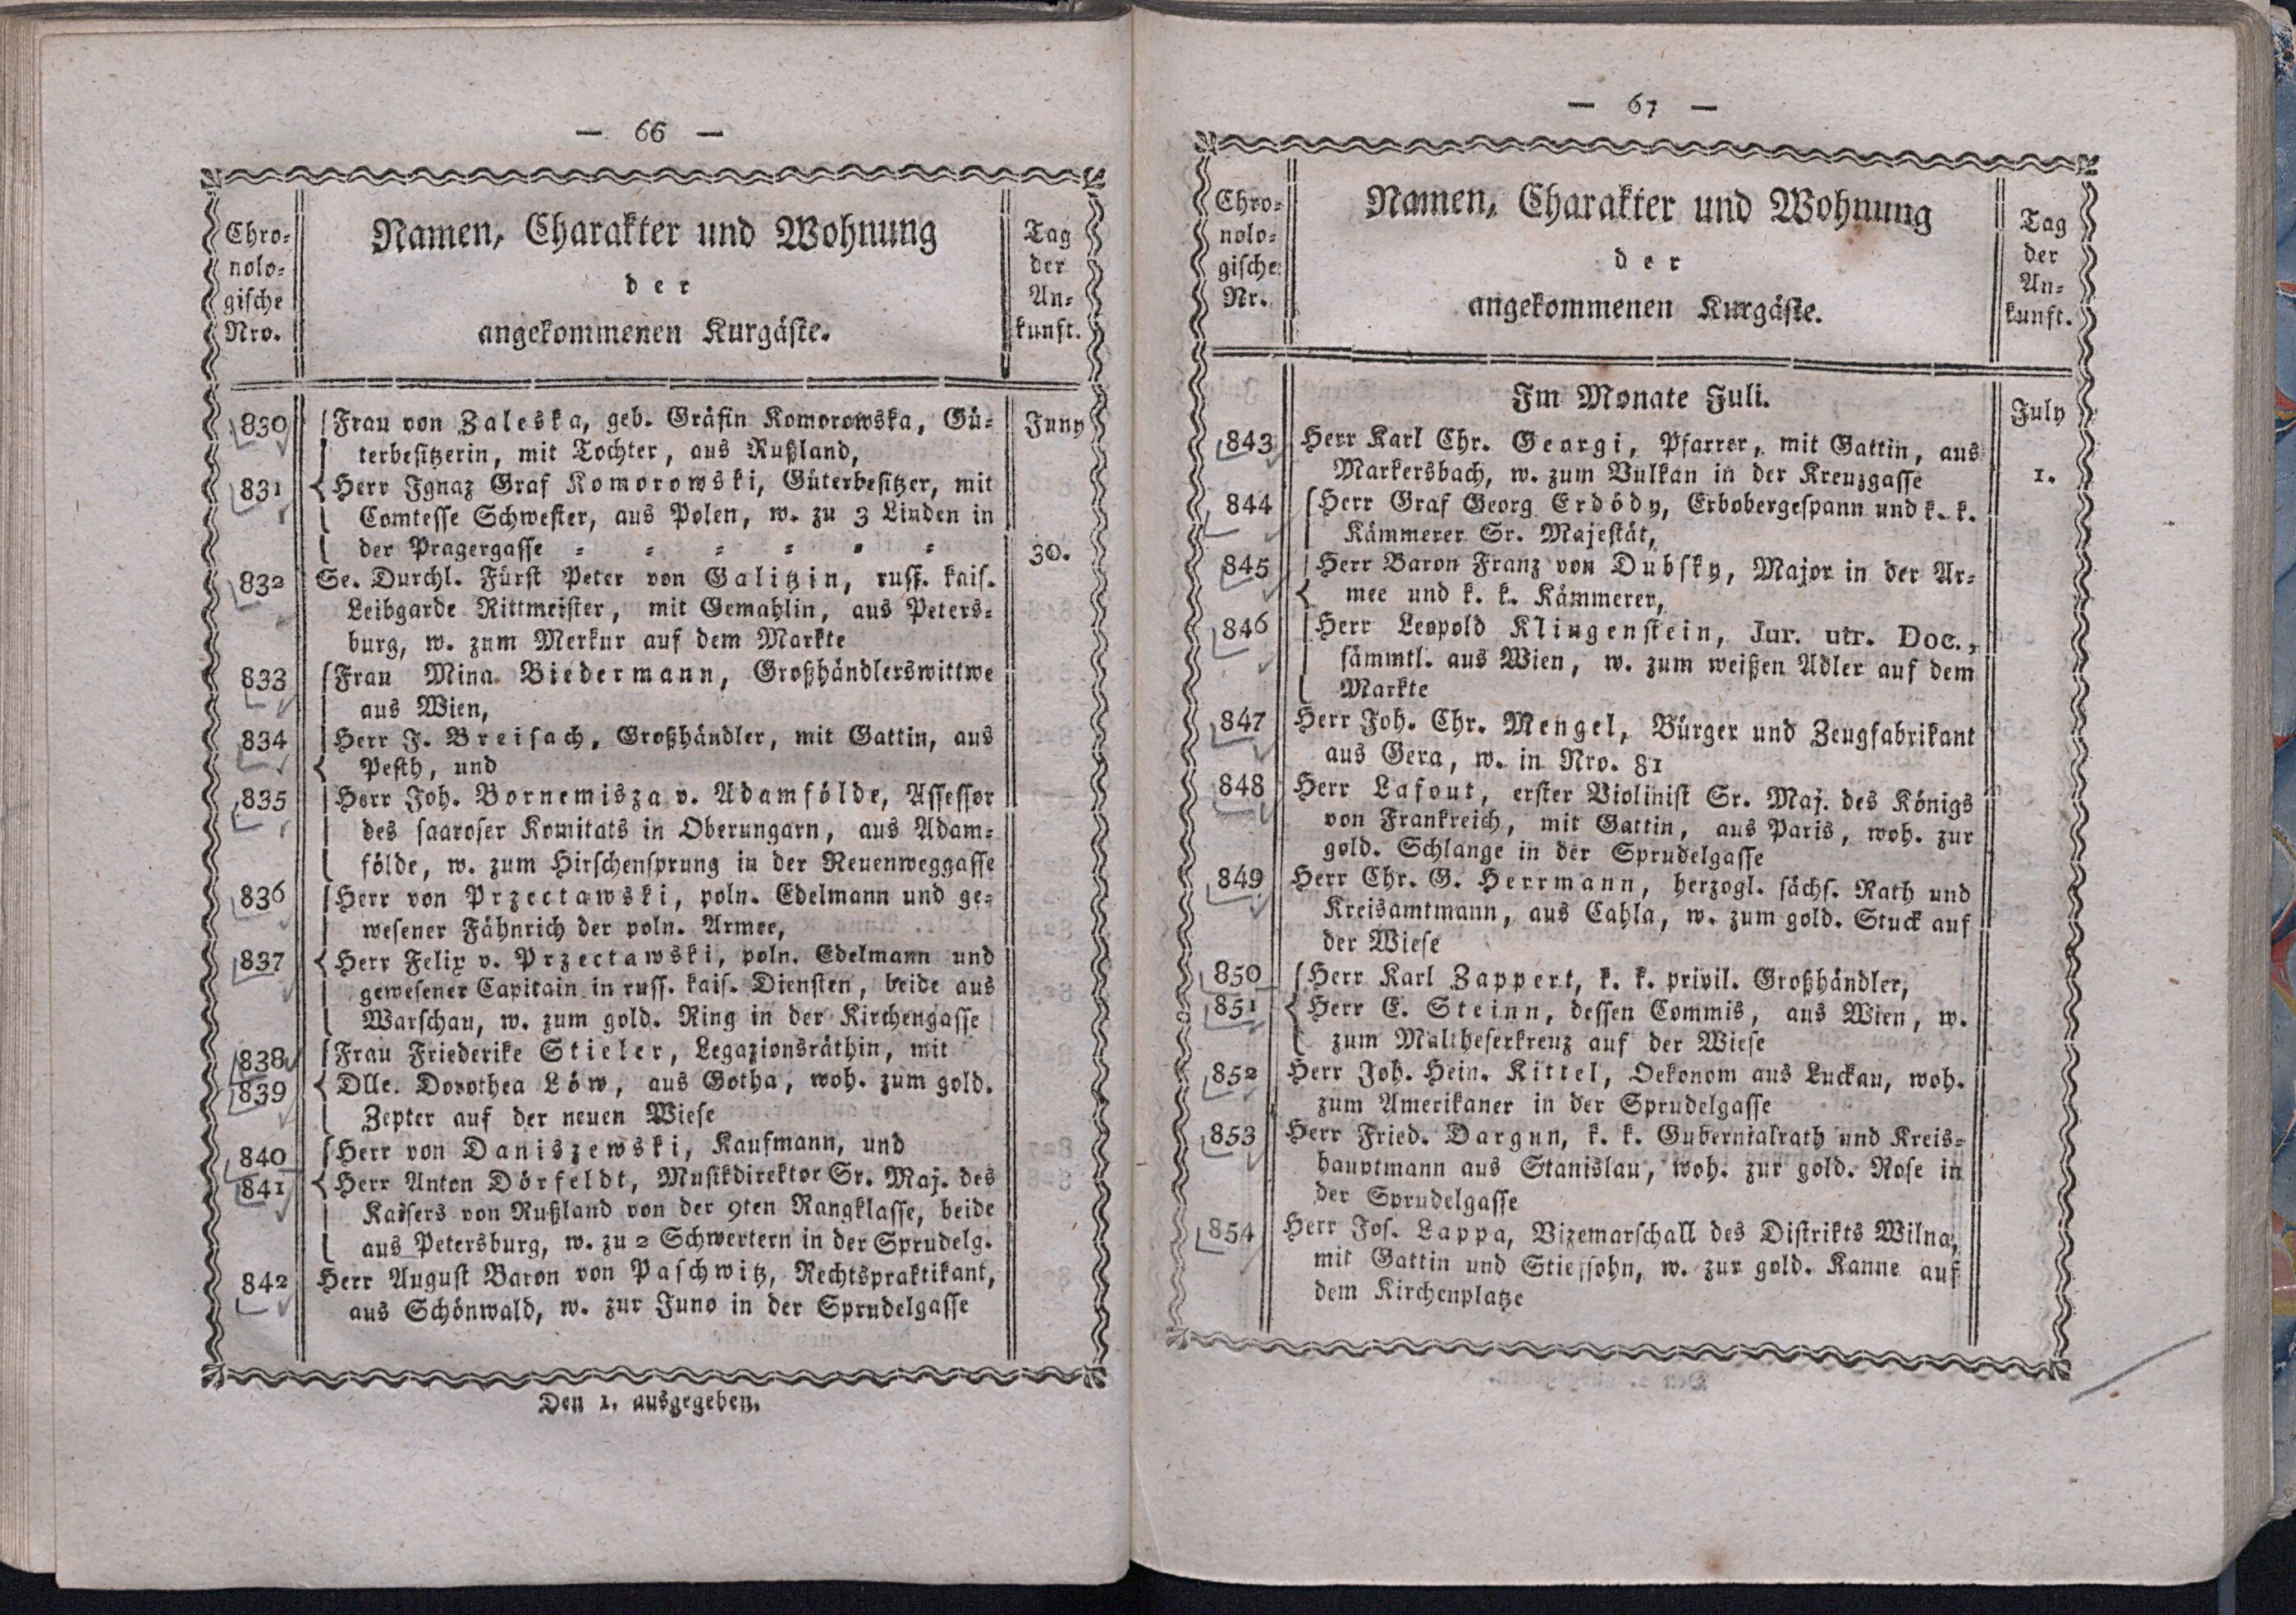 — 66 —
Chro-
nolo-
gische
Nro.
Namen, Charakter und Wohnung
der
angekommenen Kurgäste.
Tag
der
An-
kunft.
830 Frau von Zaleska, geb. Gräfin Komorowska, Gü- Juny
terbesitzerin, mit Tochter, aus Rußland,
831 Herr Ignaz Graf Komorowski, Güterbesitzer, mit
Comtesse Schwester, aus Polen, w. zu 3 Linden in
der Pragergasse = = = = = = 30.
832 Se. Durchl. Fürst Peter von Galitzin, russ. kais.
Leibgarde Rittmeister, mit Gemahlin, aus Peters-
burg, w. zum Merkur auf dem Markte
833 Frau Mina Biedermann, Großhändlerswittwe
aus Wien,
834 Herr J. Breisach, Großhändler, mit Gattin, aus
Pesth, und
835 Herr Joh. Bornemisza v. Adamfölde, Assessor
des saaroser Komitats in Oberungarn, aus Adam-
földe, w. zum Hirschensprung in der Neuenweggasse
836 Herr von Przectawski, poln. Edelmann und ge-
wesener Fähnrich der poln. Armee,
837 Herr Felix v. Przectawski, poln. Edelmann und
gewesener Capitain in russ. kais. Diensten, beide aus
Warschau, w. zum gold. Ring in der Kirchengasse
838 Frau Friederike Stieler, Legazionsräthin, mit
839 Dlle. Dorothea Löw, aus Gotha, woh. zum gold.
Zepter auf der neuen Wiese
840 Herr von Daniszewski, Kaufmann, und
841 Herr Anton Dörfeldt, Musikdirektor Sr. Maj. des
Kaisers von Rußland von der 9ten Rangklasse, beide
aus Petersburg, w. zu 2 Schwertern in der Sprudelg.
842 Herr August Baron von Paschwitz, Rechtspraktikant,
aus Schönwald, w. zur Juno in der Sprudelgasse
Den 1. ausgegeben.
— 67 —
Chro-
nolo-
gische
Nr.
Namen, Charakter und Wohnung
der
angekommenen Kurgäste.
Tag
der
An-
kunft.
Im Monate Juli. July
843 Herr Karl Chr. Georgi, Pfarrer, mit Gattin, aus
Markersbach, w. zum Vulkan in der Kreuzgasse 1.
844 Herr Graf Georg Erdödy, Erbobergespann und k. k.
Kämmerer Sr. Majestät,
845 Herr Baron Franz von Dubsky, Major in der Ar-
mee und k. k. Kämmerer,
846 Herr Leopold Klingenstein, Jur. utr. Doc.,
sämmtl. aus Wien, w. zum weißen Adler auf dem
Markte
847 Herr Joh. Chr. Mengel, Bürger und Zeugfabrikant
aus Gera, w. in Nro. 81
848 Herr Lafout, erster Violinist Sr. Maj. des Königs
von Frankreich, mit Gattin, aus Paris, woh. zur
gold. Schlange in der Sprudelgasse
849 Herr Chr. G. Herrmann, herzogl. sächs. Rath und
Kreisamtmann, aus Cahla, w. zum gold. Stuck auf
der Wiese
850 Herr Karl Zappert, k. k. privil. Großhändler,
851 Herr E. Steinn, dessen Commis, aus Wien, w.
zum Maltheserkreuz auf der Wiese
852 Herr Joh. Hein. Kittel, Oekonom aus Luckau, woh.
zum Amerikaner in der Sprudelgasse
853 Herr Fried. Dargun, k. k. Gubernialrath und Kreis-
hauptmann aus Stanislau, woh. zur gold. Rose in
der Sprudelgasse
854 Herr Jos. Lappa, Vizemarschall des Distrikts Wilna,
mit Gattin und Stiefsohn, w. zur gold. Kanne auf
dem Kirchenplatze